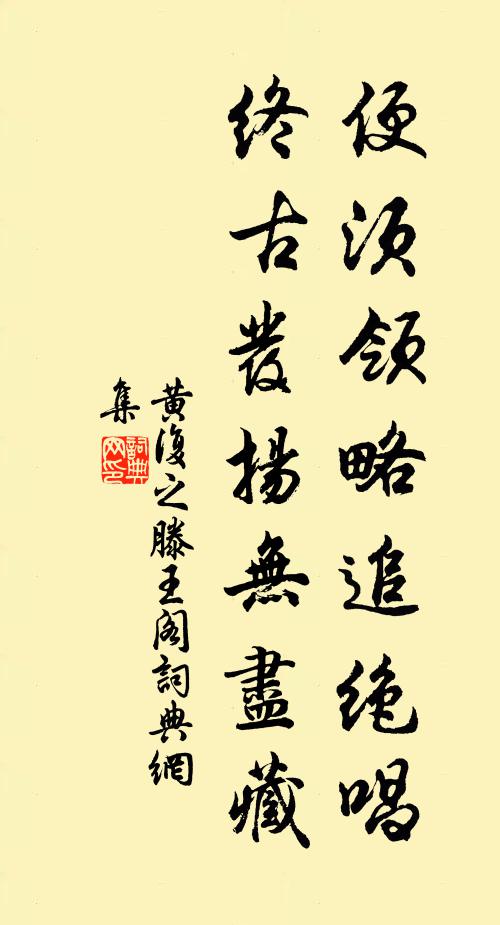 便須領略追絶唱
終古發揚無盡藏
黃復之滕王阁詞典網
集
詞典
网印